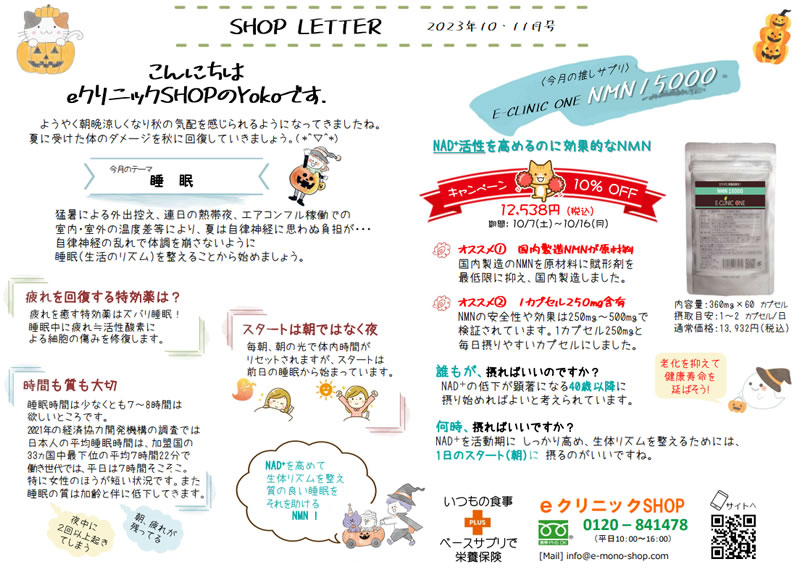 SHOP LETTER 2023年10・11月号
こんにちは
eクリニックSHOPのYokoです.
ようやく朝晩涼しくなり秋の気配を感じられるようになってきましたね。
夏に受けた体のダメージを秋に回復していきましょう。(*^▽^*)
今月のテーマ
睡 眠
猛暑による外出控え、連日の熱帯夜、エアコンフル稼働での
室内・室外の温度差等により、夏は自律神経に思わぬ負担が・・・
自律神経の乱れで体調を崩さないように
睡眠(生活のリズム)を整えることから始めましょう。
疲れを回復する特効薬は？
疲れを癒す特効薬はズバリ睡眠！
睡眠中に疲れ＝活性酸素に
よる細胞の傷みを修復します。
スタートは朝ではなく夜
毎朝、朝の光で体内時計が
リセットされますが、スタートは
前日の睡眠から始まっています。
時間も質も大切
睡眠時間は少なくとも7～8時間は
欲しいところです。
2021年の経済協力開発機構の調査では
日本人の平均睡眠時間は、加盟国の
33カ国中最下位の平均7時間22分で
働き世代では、平日は7時間そこそこ。
特に女性のほうが短い状況です。また
睡眠の質は加齢と伴に低下してきます。
夜中に
2回以上起き
てしまう
朝、疲れが
残ってる
NAD⁺を高めて
生体リズムを整え
質の良い睡眠を
それを助ける
NMN！
〈今月の推しサプリ〉
E-CLINIC ONE NMN15000
NAD⁺活性を高めるのに効果的なNMN
キャンペーン 10% OFF
12,538円（税込）
期間: 10/7(土)～10/16(月)
オススメ① 国内製造NMNが原材料
国内製造のNMNを原材料に賦形剤を
最低限に抑え、国内製造しました。
オススメ② 1カプセル250mg含有
NMNの安全性や効果は250mg～500mgで
検証されています。1カプセル250mgと
毎日摂りやすいカプセルにしました。
NMN 15000
E-CLINIC ONE
内容量:360mg×60 カプセル
摂取目安:1～2 カプセル/日
通常価格:13,932円(税込)
誰もが、摂ればいいのですか？
NAD⁺の低下が顕著になる40歳以降に
摂り始めればよいと考えられています。
老化を抑えて
健康寿命を
延ばそう！
何時、摂ればいいですか？
NAD⁺を活動期に しっかり高め、生体リズムを整えるためには、
1日のスタート(朝)に 摂るのがいいですね。
いつもの食事
PLUS
ベースサプリで
栄養保険
eクリニックSHOP
0120－841478
(平日10:00～16:00)
[Mail] info@e-mono-shop.com
サイトへ